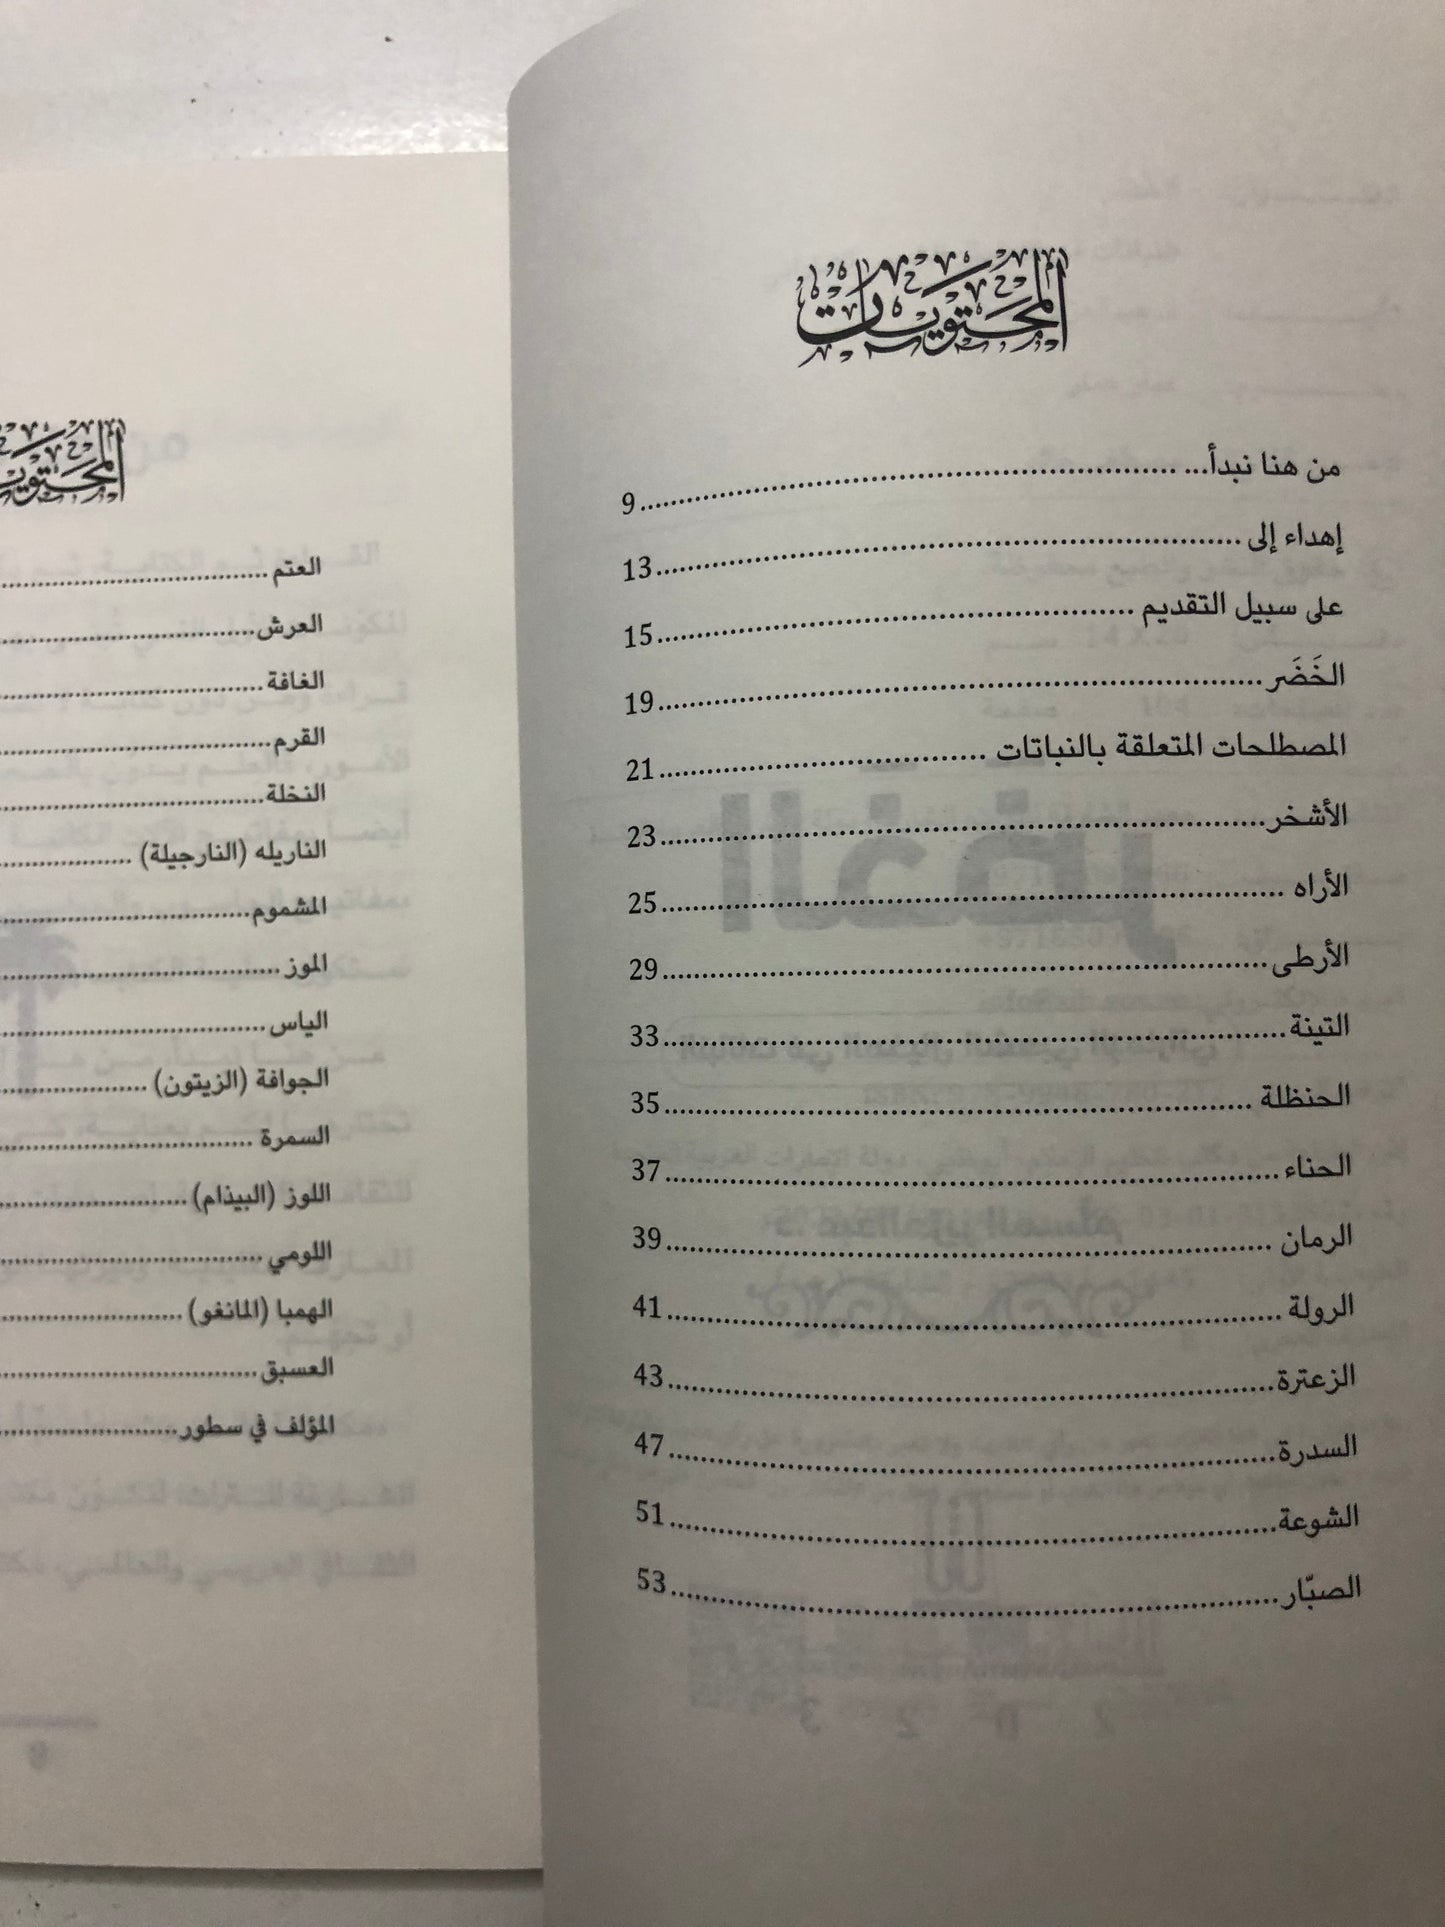 المحتويات
من هنا نبدأ... 9
إهداء إلى 13
على سبيل التقديم 15
الخَضَر 19
المصطلحات المتعلقة بالنباتات 21
الأشخر 23
الأراه 25
الأرطى 29
التينة 33
الحنظلة 35
الحناء 37
الرمان 39
الرولة 41
الزعترة 43
السدرة 47
الشوعة 51
الصبّار 53
العتم
العرش
الغافة
القرم
النخلة
الناريله (النارجيلة)
المشموم
الموز
الياس
الجوافة (الزيتون)
السمرة
اللوز (البيذام)
اللومي
الهمبا (المانغو)
العسبق
المؤلف في سطور